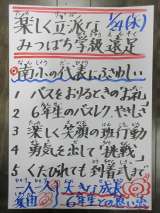 楽しく立派な 1/24(木)
みつばち等級 遠足
南小の代表にふさわしい
1 バスをおりるときのお礼
2 6年生のバスレク やさしさ
3 楽しく笑顔の班行動
4 勇気を出して「挑戦」
5 くたびれても到着式まで
一人一人 大きな成長
6年生との思い出